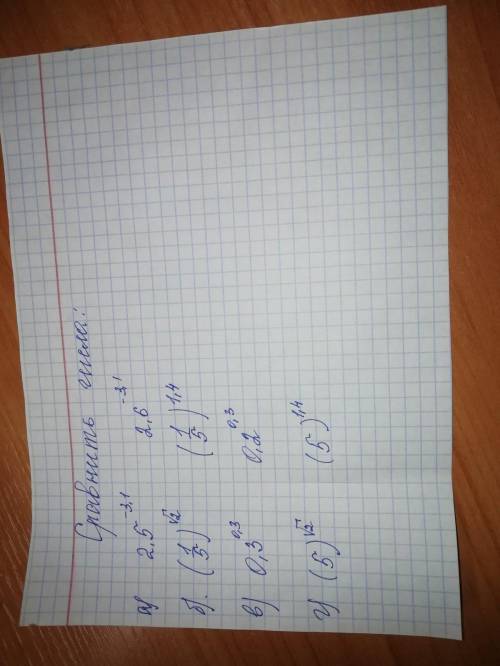 Сравнить числа:
а) 2,5^{-3,1} 2,6^{-3,1}
б). (1/5)^{√2} (1/5)^{1,4}
в) 0,3^{0,3} 0,2^{0,3}
г) (5)^{√2} (5)^{1,4}